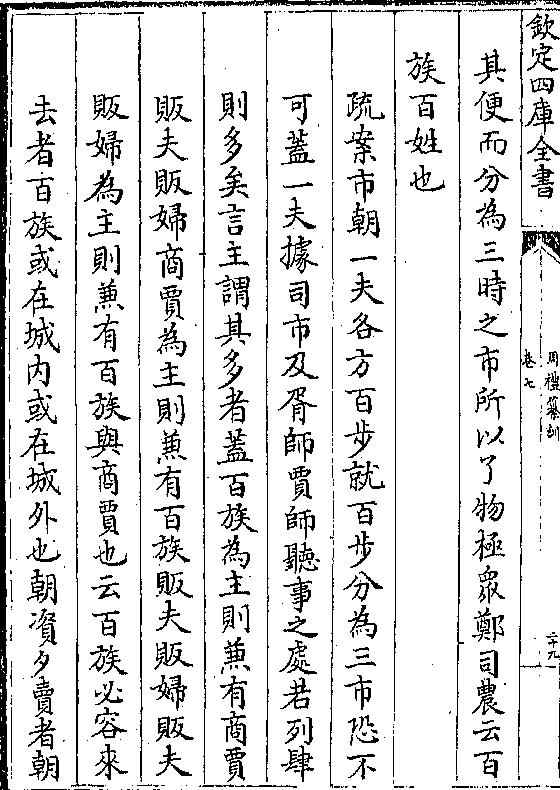 欽定四庫全書
周禮纂訓
卷七
二十九
其便而分為三時之市所以了物極眾鄭司農云百
族百姓也
疏案市朝一夫各方百步就百步分為三市恐不
可蓋一夫據司市及胥師賈師聽事之處若列肆
則多矣言主謂其多者蓋百族為主則兼有商賈
販夫販婦商賈為主則兼有百族販夫販婦販夫
販婦為主則兼有百族與商賈也云百族必容來
去者百族或在城內或在城外也朝資夕賣者朝